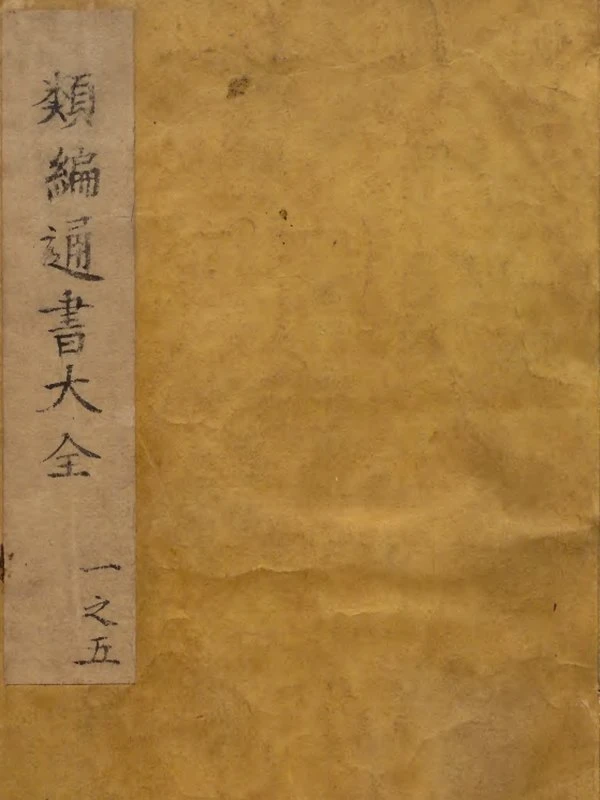 類編通書大全
一之五